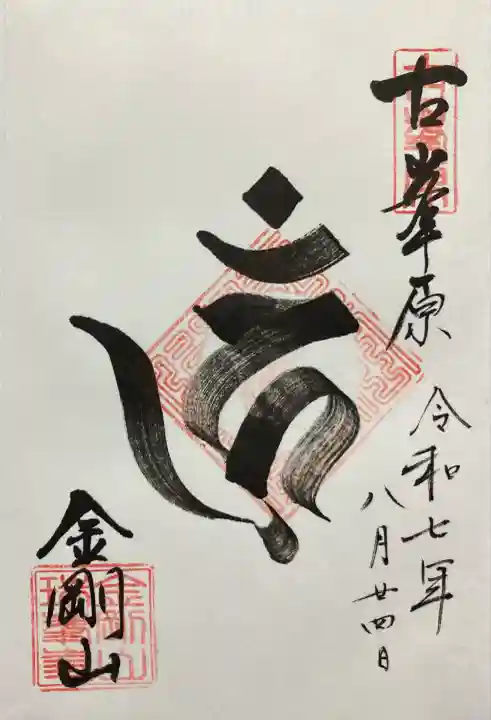 古峯原
令和七年
八月廿四日
𑖮𑖳𑖽
金剛山